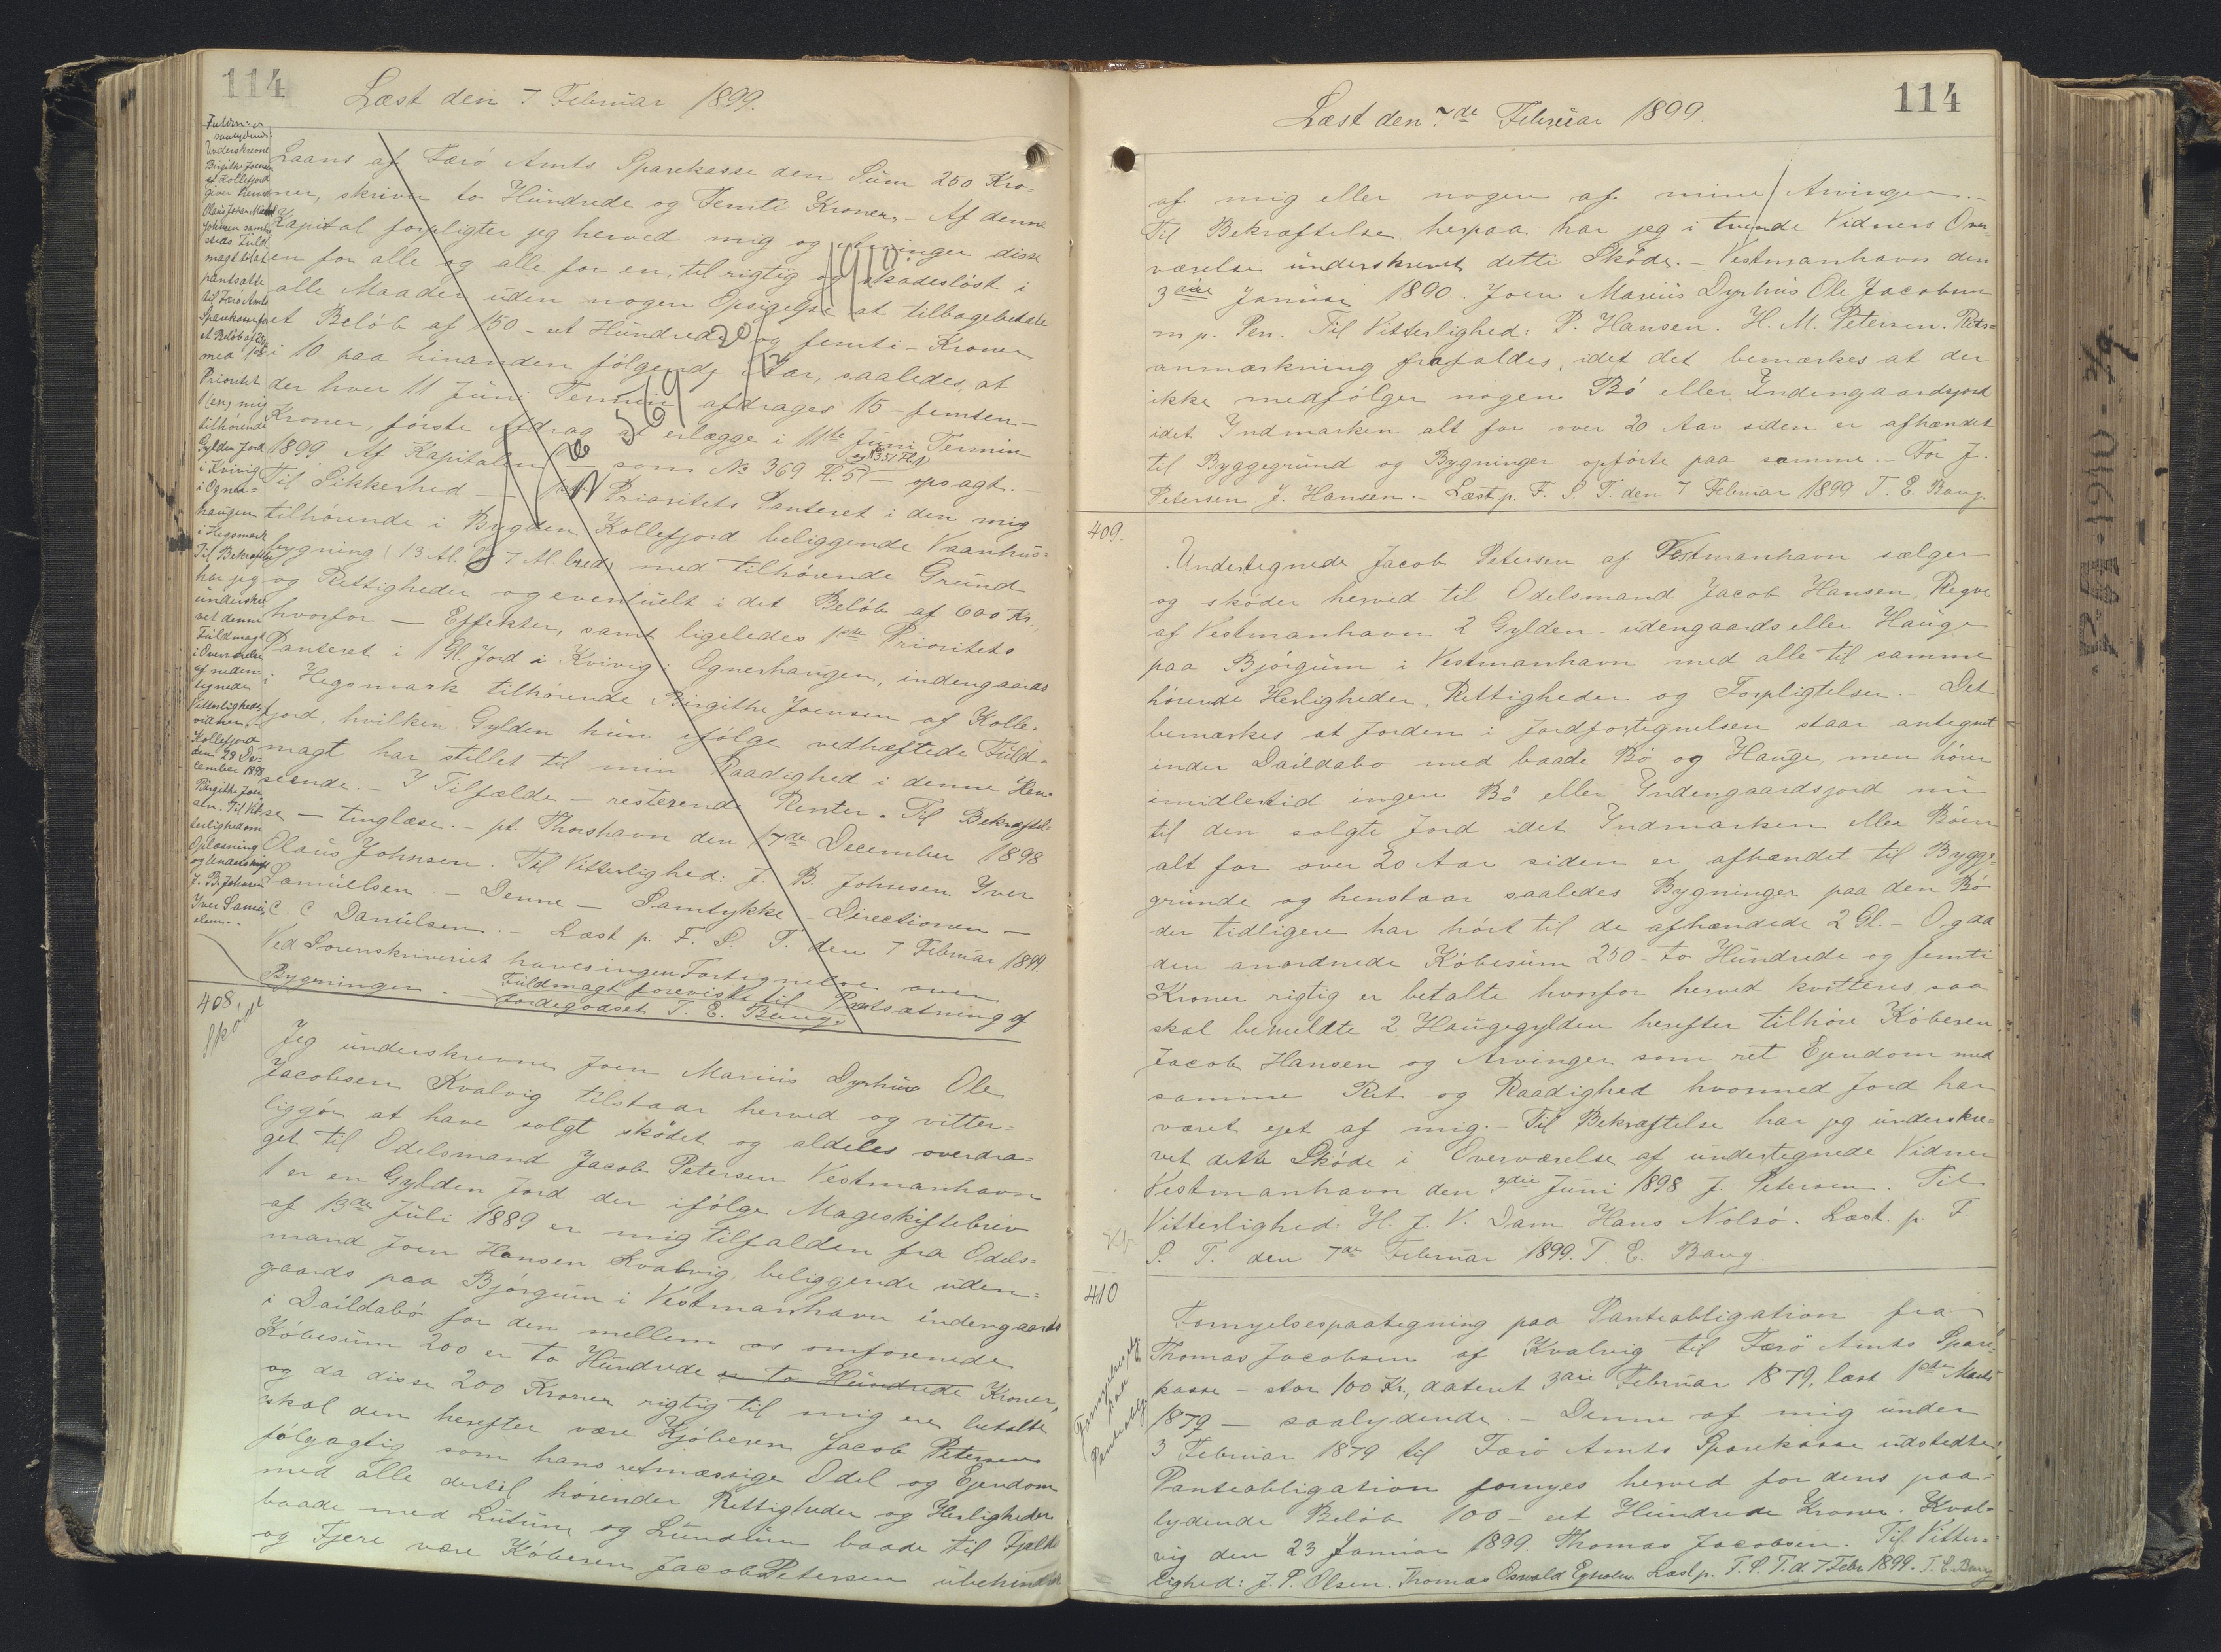 114
Læst den 7 Februar 1899.
Fuldmagt
saalydende:
Underskrevne
Birgithe Joensen
af Kollefjord
giver herved
Olaus Johan Michael
Johnsen samme
steds Fuld-
magt til at
pantsætte
til Færø Amts
Sparekasse for
et Beløb af
med 1ste
Prioritet
1 (en) mig
tilhørende
Gylden Jord
i Kvivig
i Ogner-
haugen
i Hegomark
Til Bekræftelse
har jeg
underskre-
vet denne
Fuldmagt
i Overværelse
af neden-
tegnede
Vitterligheds-
vidner.
Kollefjord
den 29 De-
cember 1898
Birgithe Joen-
sen. Til Vit-
terlighed om
Oplæsning
og Underskrift
J. B. Johnsen
Yver Samu-
elsen.
Laans af Færø Amts Sparekasse den Sum 250 Kro-
ner, skriver to Hundrede og Femti Kroner. - Af denne
Kapital forpligter jeg herved mig og Arvinger disse
en for alle og alle for en, til rigtig og skadesløst i
alle Maader uden nogen Opsigelse at tilbagebetale
et Beløb af 150 - et Hundrede og femti - Kroner
i 10 paa hinanden følgende Aar, saaledes, at
der hver 11 Juni Termin afdrages 15 - femten -
Kroner, første Afdrag at erlægge i 11te Juni Termin
1899 Af Kapitalen - som No 369 - opsagt. -
Til Sikkerhed - 1ste Prioritets Panteret i den mig
tilhørende i Bygden Kollefjord beliggende Vaanhus-
bygning (13 Al. l. 7 Al. bred) med tilhørende Grund
og Rettigheder og eventuelt i det Beløb af 600 Kr.
hvorfor - Effekter, samt ligeledes 1ste Prioritets
Panteret i 1 Gl. Jord i Kvivig i Ognerhaugen, indengaards
i Hegomark tilhørende Birgithe Joensen af Kolle-
fjord, hvilken Gylden hun ifølge vedhæftede Fuld-
magt har stillet til min Raadighed i denne Hen-
seende. - I Tilfælde - resterende Renter. Til Bekræftel-
se - tinglæse. - pt. Thorshavn den 17de December 1898
Olaus Johnsen. Til Vitterlighed: J. B. Johnsen Yver
Samuelsen. - Denne - Samtykke - Directionen -
C. C. Danielsen. - Læst p. F. S. T. den 7 Februar 1899.
Ved Sorenskriveriet haves ingen Fortegnelse over
Bygningen. Fuldmagt foreviste til Pantsætning af
Jordegodset T. E. Bang.
408.
Skøde
Jeg underskrevne Joen Marius Dyrhus Ole
Jacobsen Kvalvig tilstaar herved og vitter-
liggør at have solgt skødet og aldeles overdra-
get til Odelsmand Jacob Petersen Vestmanhavn
1 er en Gylden Jord der ifølge Mageskiftebrev
af 13de Juli 1889 er mig tilfalden fra Odels-
mand Joen Hansen Kvalvig, beliggende uden-
gaards paa Bjørgum i Vestmanhavn indengaards
i Daildabø for den mellem os omforenede
Købesum 200 er to Hundrede er to Hundrede Kroner,
og da disse 200 Kroner rigtig til mig ere betalte
skal den herefter være Kjøberen Jacob Petersen
følgagtig som hans retmæssige Odel og Ejendom
med alle dertil hørende Rettigheder og Herligheder
baade med Lutum og Lundum baade til Fjelds
og Fjere være Køberen Jacob Petersen ubehindret
114
Læst den 7de Februar 1899.
af mig eller nogen af mine Arvinger. -
Til Bekræftelse herpaa har jeg i tvende Vidners Over-
værelse underskrevet dette Skøde. - Vestmanhavn den
3die Januar 1890. Joen Marius Dyrhus Ole Jacobsen
m. p. Pen. Til Vitterlighed: P. Hansen. H. M. Petersen. Rets-
anmærkning frafaldes, idet det bemærkes at der
ikke medfølger nogen Bø eller Indengaardsjord
idet Indmarken alt for over 20 Aar siden er afhændet
til Byggegrund og Bygninger opførte paa samme. - For J.
Petersen J. Hansen. - Læst p. F. S. T. den 7 Februar 1899 T. E. Bang
409.
Undertegnede Jacob Petersen af Vestmanhavn sælger
og skøder herved til Odelsmand Jacob Hansen, Regve
af Vestmanhavn 2 Gylden udengaards eller Hauge
paa Bjørgum i Vestmanhavn med alle til samme
hørende Herligheder, Rettigheder og Forpligtelser. - Det
bemærkes at Jorden i Jordfortegnelsen staar antegnet
under Daildabø med baade Bø og Hauge, men hører
imidlertid ingen Bø eller Indengaardsjord nu
til den solgte Jord idet Indmarken eller Bøen
alt for over 20 Aar siden er afhændet til Bygge-
grunde og henstaar saaledes Bygninger paa den Bø
der tidligere har hørt til de afhændede 2 Gl. - Og da
den anordnede Købesum 250 - to Hundrede og femti
Kroner rigtig er betalte hvorfor herved kvitteres saa
skal bemeldte 2 Haugegylden herefter tilhøre Køberen
Jacob Hansen og Arvinger som ret Ejendom med
samme Ret og Raadighed hvormed Jord har
været ejet af mig. - Til Bekræftelse har jeg underskre-
vet dette Skøde i Overværelse af undertegnede Vidner
Vestmanhavn den 3die Juni 1898 J. Petersen. Til
Vitterlighed: H. J. V. Dam Hans Nolsø. Læst. p. F.
S. T. den 7de Februar 1899. T. E. Bang.
410
Fornyelsespaategn.
paa
Panteobligat.
Fornyelsespaategning paa Panteobligation fra
Thomas Jacobsen af Kvalvig til Færø Amts Spare-
kasse - stor 100 Kr., dateret 3die Februar 1879, læst 1ste Marts
1879 - saalydende. - Denne af mig under
3 Februar 1879 til Færø Amts Sparekasse udstedte
Panteobligation fornyes herved for dens paa-
lydende Beløb 100 - et Hundrede Kroner. Kval-
vig den 23 Januar 1899. Thomas Jacobsen. Til Vitter-
lighed: J. P. Olsen. Thomas Oswald Egholm Læst p. F. S. T. d. 7 Febr 1899. T. E. Bang